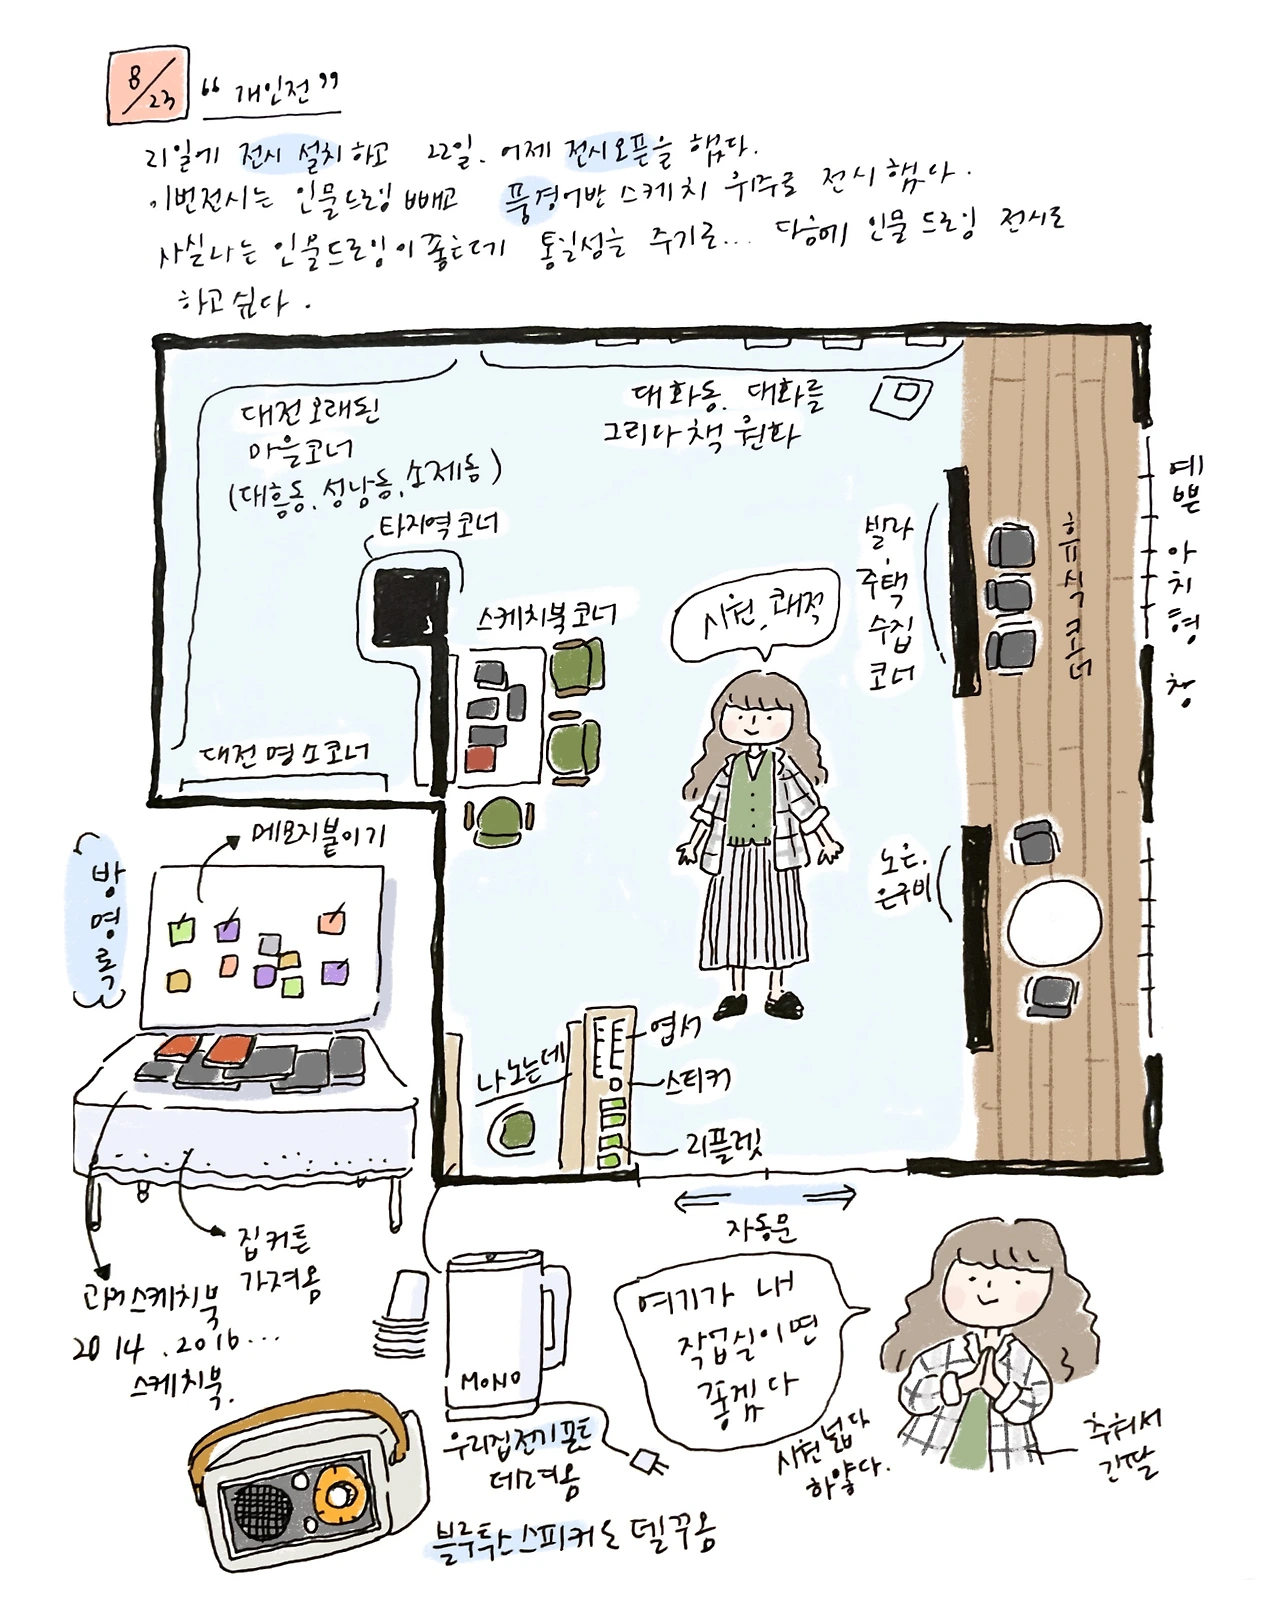 8/23 “개인전”
21일에 전시 설치하고 22일. 어제 전시오픈을 했다.
이번전시는 인물드로잉 빼고 풍경어반 스케치 위주로 전시 했다.
사실나는 인물드로잉이 좋은데 통일성을 주기로... 다음에 인물 드로잉 전시도
하고싶다.
대전오래된
마을코너
(대흥동.성남동.소제동)
대화동. 대화를
그리다 책 원화
타지역코너
스케치북코너
시원.쾌적
빌라.
주택
수집
코너
휴식코너
예쁜 아치형 창
대전명소코너
노은.
은구비
방명록
메모지붙이기
나노는데
엽서
스티커
리플렛
자동문
집커튼
가져옴
과거스케치북
2014.2016...
스케치북.
MONO
우리집전기포트
데려옴
블루투스스피커도 델꾸옴
여기가 내
작업실이면
좋겠다
시원넓다
하얗다.
추워서
간딸